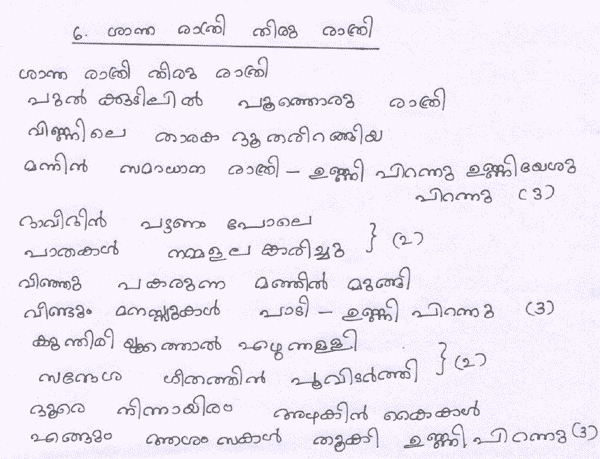 6. ശാന്ത രാത്രി തിരു രാത്രി
ശാന്ത രാത്രി തിരു രാത്രി
പുൽ ക്കുടിലിൽ പൂത്തൊരു രാത്രി
വിണ്ണിലെ താരക ദൂതരിറങ്ങിയ
മന്നിൻ സമാധാന രാത്രി – ഉണ്ണി പിറന്നു ഉണ്ണിയേശു
പിറന്നു (3)
ദാവീദിൻ പട്ടണം പോലെ
പാതകൾ നമ്മളലങ്കരിച്ചു } (2)
വീഞ്ഞു പകരുന്ന മഞ്ഞിൽ മുങ്ങി
വീണ്ടും മനസ്സുകൾ പാടി – ഉണ്ണി പിറന്നു (3)
കുന്തിരിക്കത്താൽ എഴുന്നള്ളി
സന്ദേശ ഗീതത്തിൻ പൂവിടർത്തി } (2)
ദൂരെ നിന്നായിരം അഴകിൻ കൈകൾ
എങ്ങും ആശംസകൾ തൂകി ഉണ്ണി പിറന്നു (3)